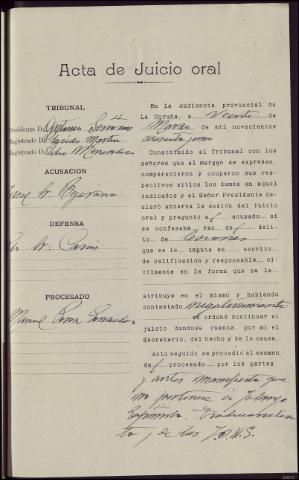 Acta de Juicio oral
TRIBUNAL
Presidente D. Antonio
Magistrado D.
Magistrado D. Pedro
ACUSACION
DEFENSA
PROCESADO
Manuel
En la Audiencia provincial de
La Coruña, a Veinte de
Marzo de mil novecientos
cuarenta y uno
Constituido el Tribunal con los
señores que al margen se expresan,
comparecieron y ocuparon sus
respectivos sitios los demás en aquel
indicados y el Señor Presidente de-
claró abierta la sesión del juicio
oral y preguntó al acusado si
se confesaba reo del delito
de lesiones
que se le imputa en escrito
de calificación y responsable ci-
vilmente en la forma que se le
atribuye en el mismo y habiendo
contestado negativamente
se ordenó continuar el
juicio dándose cuenta, por mi el
Secretario, del hecho y de la causa.
Acto seguido se procedió al examen
del procesado por las partes
y antes manifiesta que
no pertenece a Falange
Española Tradicionalis
ta y de las J.O.N.S.